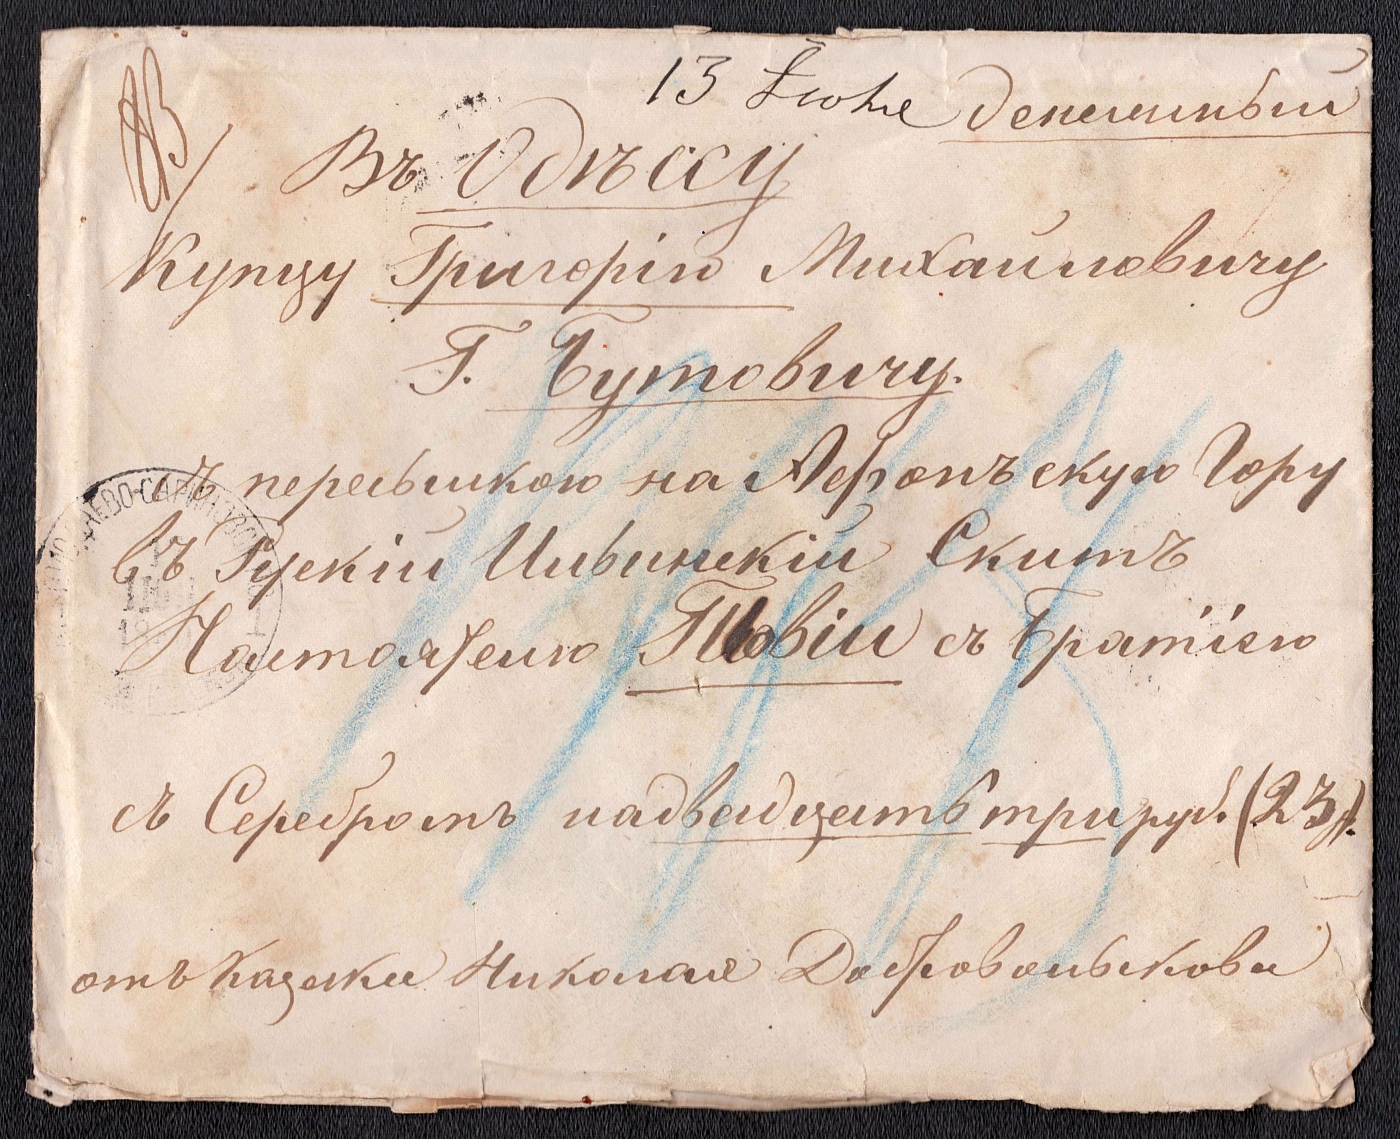 13 Июня денежный
Въ Одѣссу
Купцу Григорію Михаиловичу
Г. Бутовичу.
съ пересылкою на Афонъскую Гору
въ Руский Ильинский Скитъ
Настоятелю Товіи съ Братіею
съ Серебромъ на двадцать три руб. (23 р).
отъ Казака Николая Добровольскова